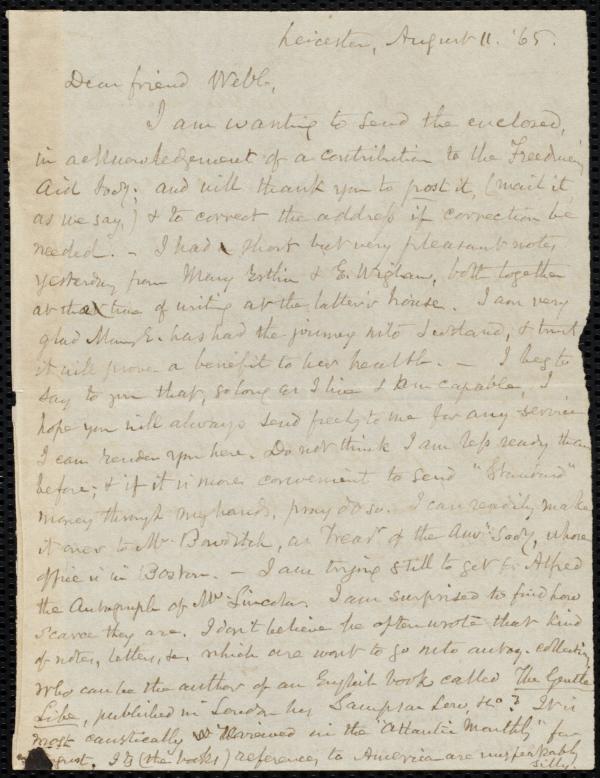 Leicester, August 11. '65.
Dear friend Webb,
I am wanting to send the enclosed,
in acknowledgement of a contribution to the Freedmen's
Aid Socy; and will thank you to post it, (mail it,
as we say,) & to correct the address if correction be
needed. — I had short but very pleasant notes
yesterday from Mary Estlin & E. Wigham, both together
at the time of writing at the latter's house. I am very
glad Mary E. has had the journey into Scotland, & trust
it will prove a benefit to her health. — I beg to
say to you that, so long as I live & am capable, I
hope you will always send freely to me for any service
I can render you here. Do not think I am less ready than
before; & if it is more convenient to send "Standard"
money through my hands, pray do so. I can readily make
it over to Mr. Bowditch, as Treasr. of the Amn. Socy, whose
office is in Boston. — I am trying still to get for Alfred
the Autograph of Mr. Lincoln. I am surprised to find how
scarce they are. I don't believe he often wrote that kind
of notes, letters, &c. which are wont to go into autog. collections
Who can be the author of an English book called The Gentle
Life, published in London by Sampson Low, &c? It is
most caustically reviewed in the "Atlantic Monthly" for
August. Its (the book's) references to America are unspeakably
silly.